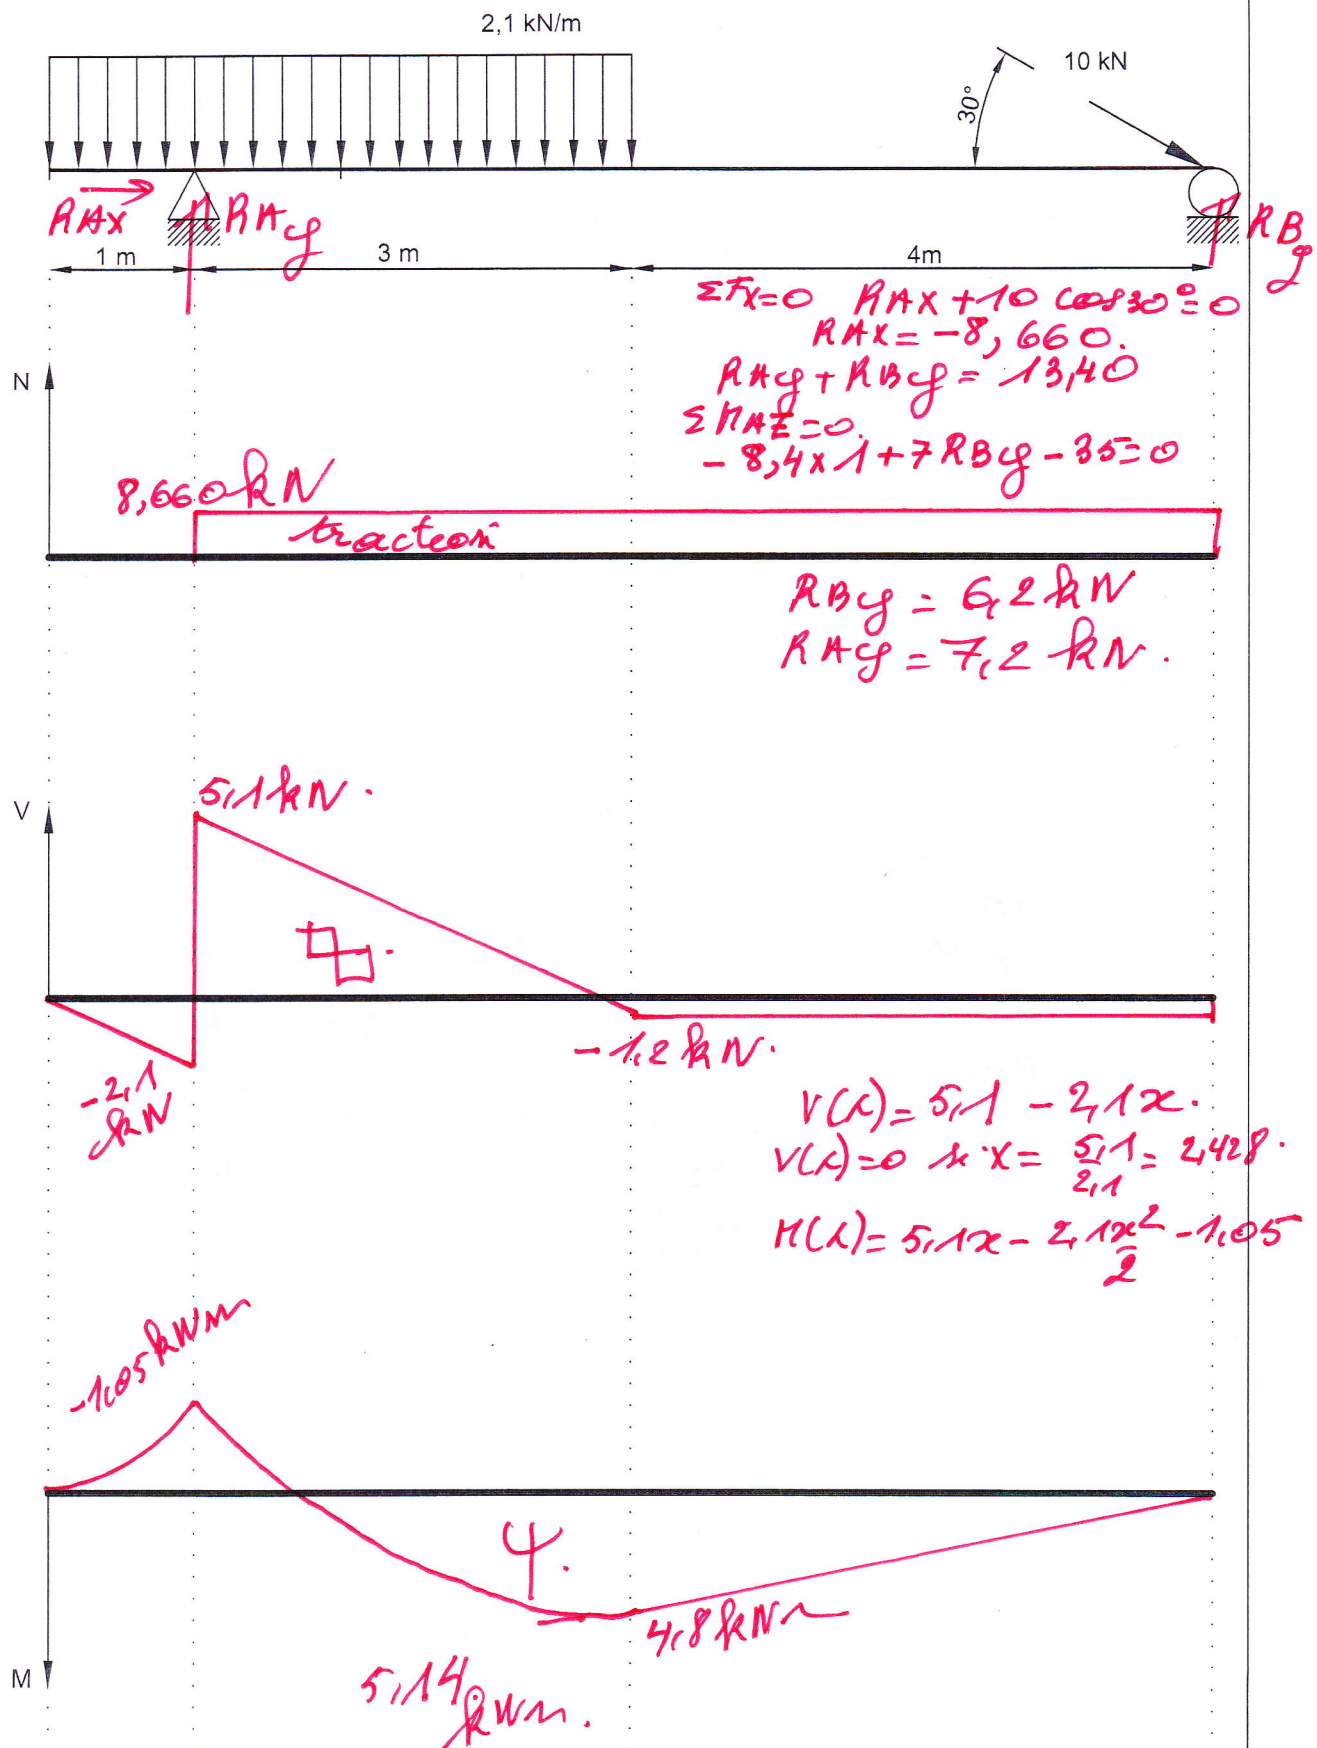 2,1 kN/m
30°
10 kN
RAx
RAy
RBy
1 m
3 m
4m
ΣFx=0 RAx+10 cos30°=0
RAx=-8,660.
N
RAy+RBy= 13,40
ΣMAZ=0.
-8,4x1+7RBy-35=0
8,660kN
traction
RBy = 6,2kN
RAy = 7,2 kN.
5,1kN.
V
-1,2kN.
-2,1
kN
V(x)= 5,1 - 2,1x.
V(x)=0 si x= 5,1/2,1 = 2,428.
M(x)= 5,1x- 2,1x²/2 -1,05
-1,05kNm
4,8kNm
M
5,14
kNm.